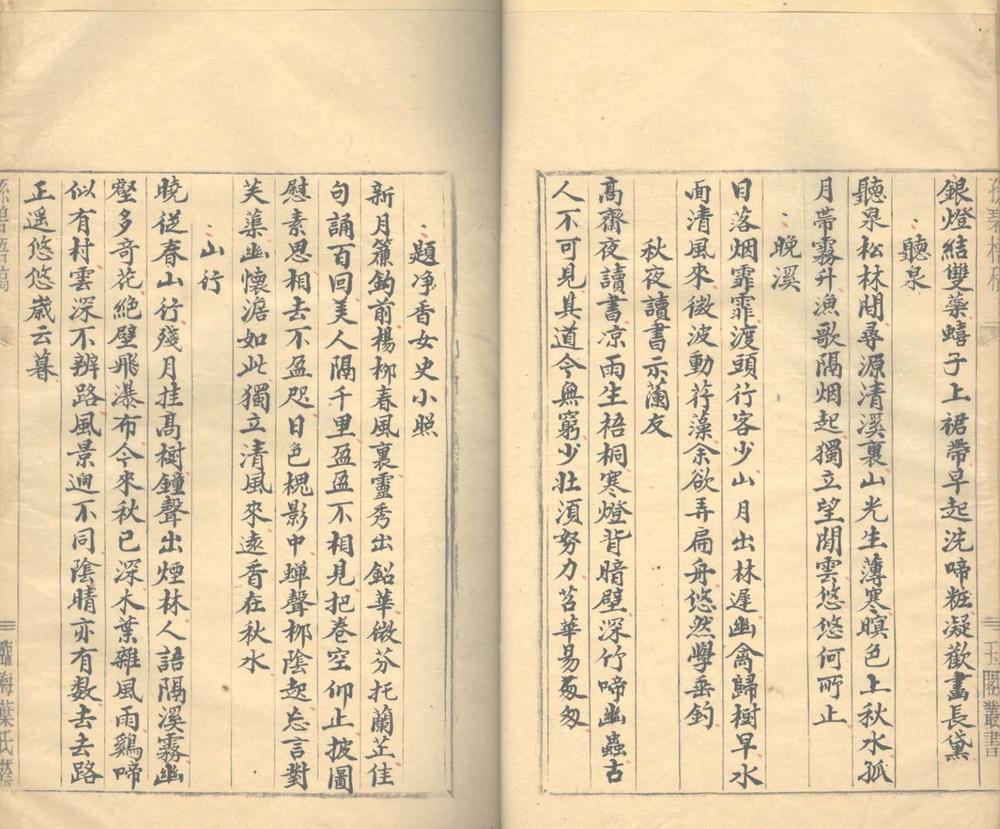 銀燈結雙蘂蟢子上裙帶早起洗啼粧凝歡畫長黛
聽泉
聽泉松林間尋源清溪裏山光生薄寒暝色上秋水孤
月帶霧升漁歌隔烟起獨立望閒雲悠悠何所止
晚溪
日落烟霏霏渡頭行客少山月出林遲幽禽歸樹早水
面清風來微波動荇藻余欲弄扁舟悠然學垂釣
秋夜讀書示蘭友
高齋夜讀書凉雨生梧桐寒燈背暗壁深竹啼幽蟲古
人不可見其道今無窮少壯湏努力苕華易匆匆
題净香女史小照
新月簾鈎前楊柳春風裏靈秀出鉛華微芬托蘭芷佳
句誦百回美人隔千里盈盈不相見把卷空仰止披圖
慰素思相去不盈咫日色槐影中蟬聲柳陰起忘言對
芙蕖幽懷澹如此獨立清風來遠香在秋水
山行
曉從春山行殘月挂高樹鐘聲出煙林人語隔溪霧幽
壑多奇花絕壁飛瀑布今來秋已深木葉雜風雨鷄啼
似有村雲深不辨路風景迥不同陰晴亦有數去去路
正遥悠悠歲云暮